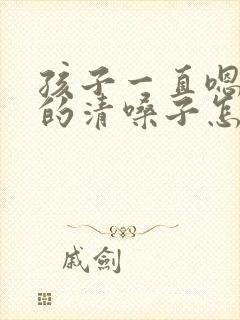 孩子一直嗯
的清嗓子怎
戚劍